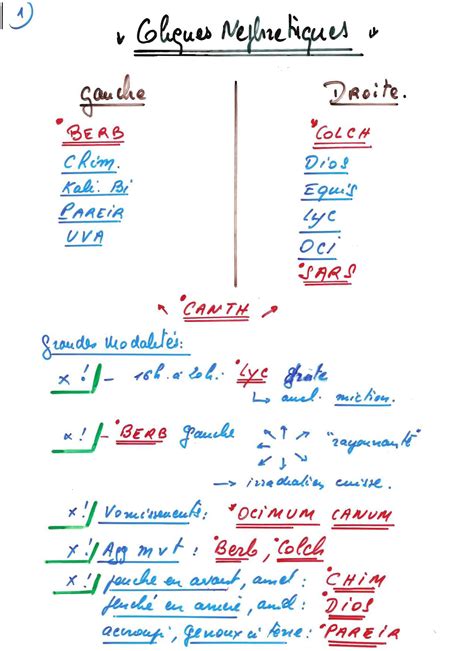 1)
Coliques Nephretiques
Gauche
Droite.
BERB
Chim.
Kali. Bi
PAREIR
UVA
COLCH
Dios
Equis
Lyc
OCI
SARS
CANTH
Grandes Modalités:
x ! - 16h. à 20h. : Lyc droite
↳ amel. miction.
x ! - BERB gauche "rayonnante"
→ irradiation cuisse.
x ! Vomissements : OCIMUM CANUM
x ! Agg mvt : Berb, Colch
x ! penché en avant, amel : CHIM
penché en arrière, amel : DIOS
accroupi, genoux à terre : PAREIR